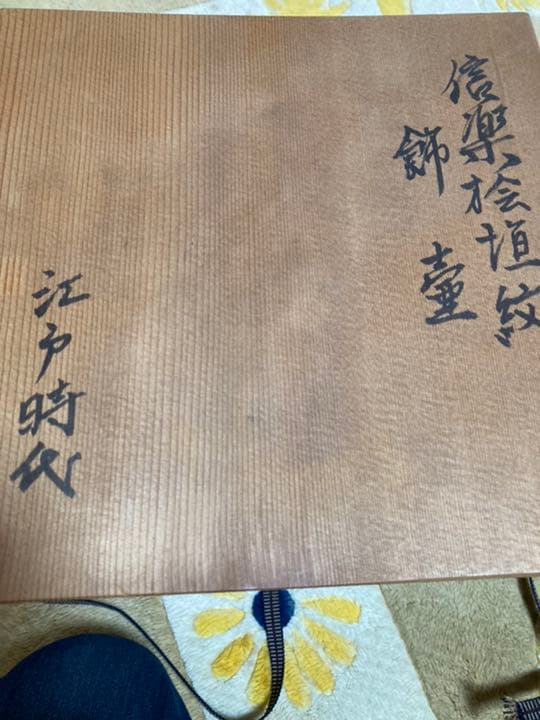 信楽桧垣紋
飾壷
江戸時代